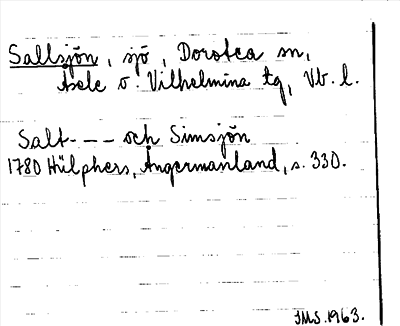 Sallsjön, sjö, Dorotea sn,
Åsele o. Vilhelmina tg, Vb. l.
Salt- - - och Simsjön
1780 Hülphers, Ångermanland, s. 330.
JMS. 1963.